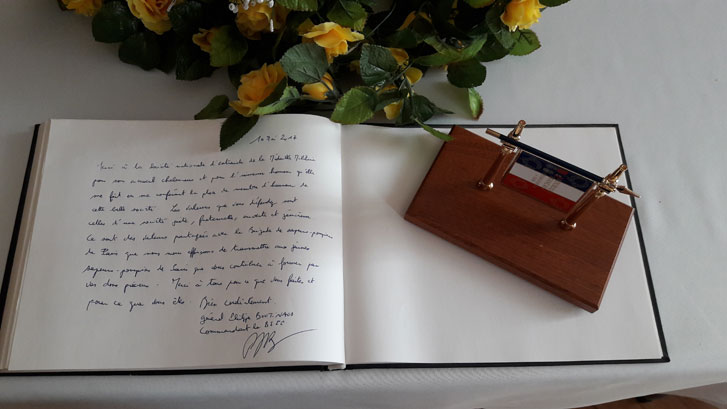 10 Mai 2017
Merci à la Société nationale d'entraide de la Médaille Militaire
pour son accueil chaleureux et pour l'immense honneur qu'elle
me fait en me conférant la place de membre d'honneur de
cette belle société. Les valeurs que vous défendez sont
celles d'une société juste, fraternelle, ouverte et généreuse.
Ce sont des valeurs partagées avec la Brigade de sapeurs-pompiers
de Paris que nous nous efforçons de transmettre aux jeunes
sapeurs-pompiers de Paris que vous contribuez à former par
vos dons précieux. Merci à tous pour ce que vous faites et
pour ce que vous êtes. Bien cordialement.
général Philippe BOUTINAUD
Commandant la BSPP